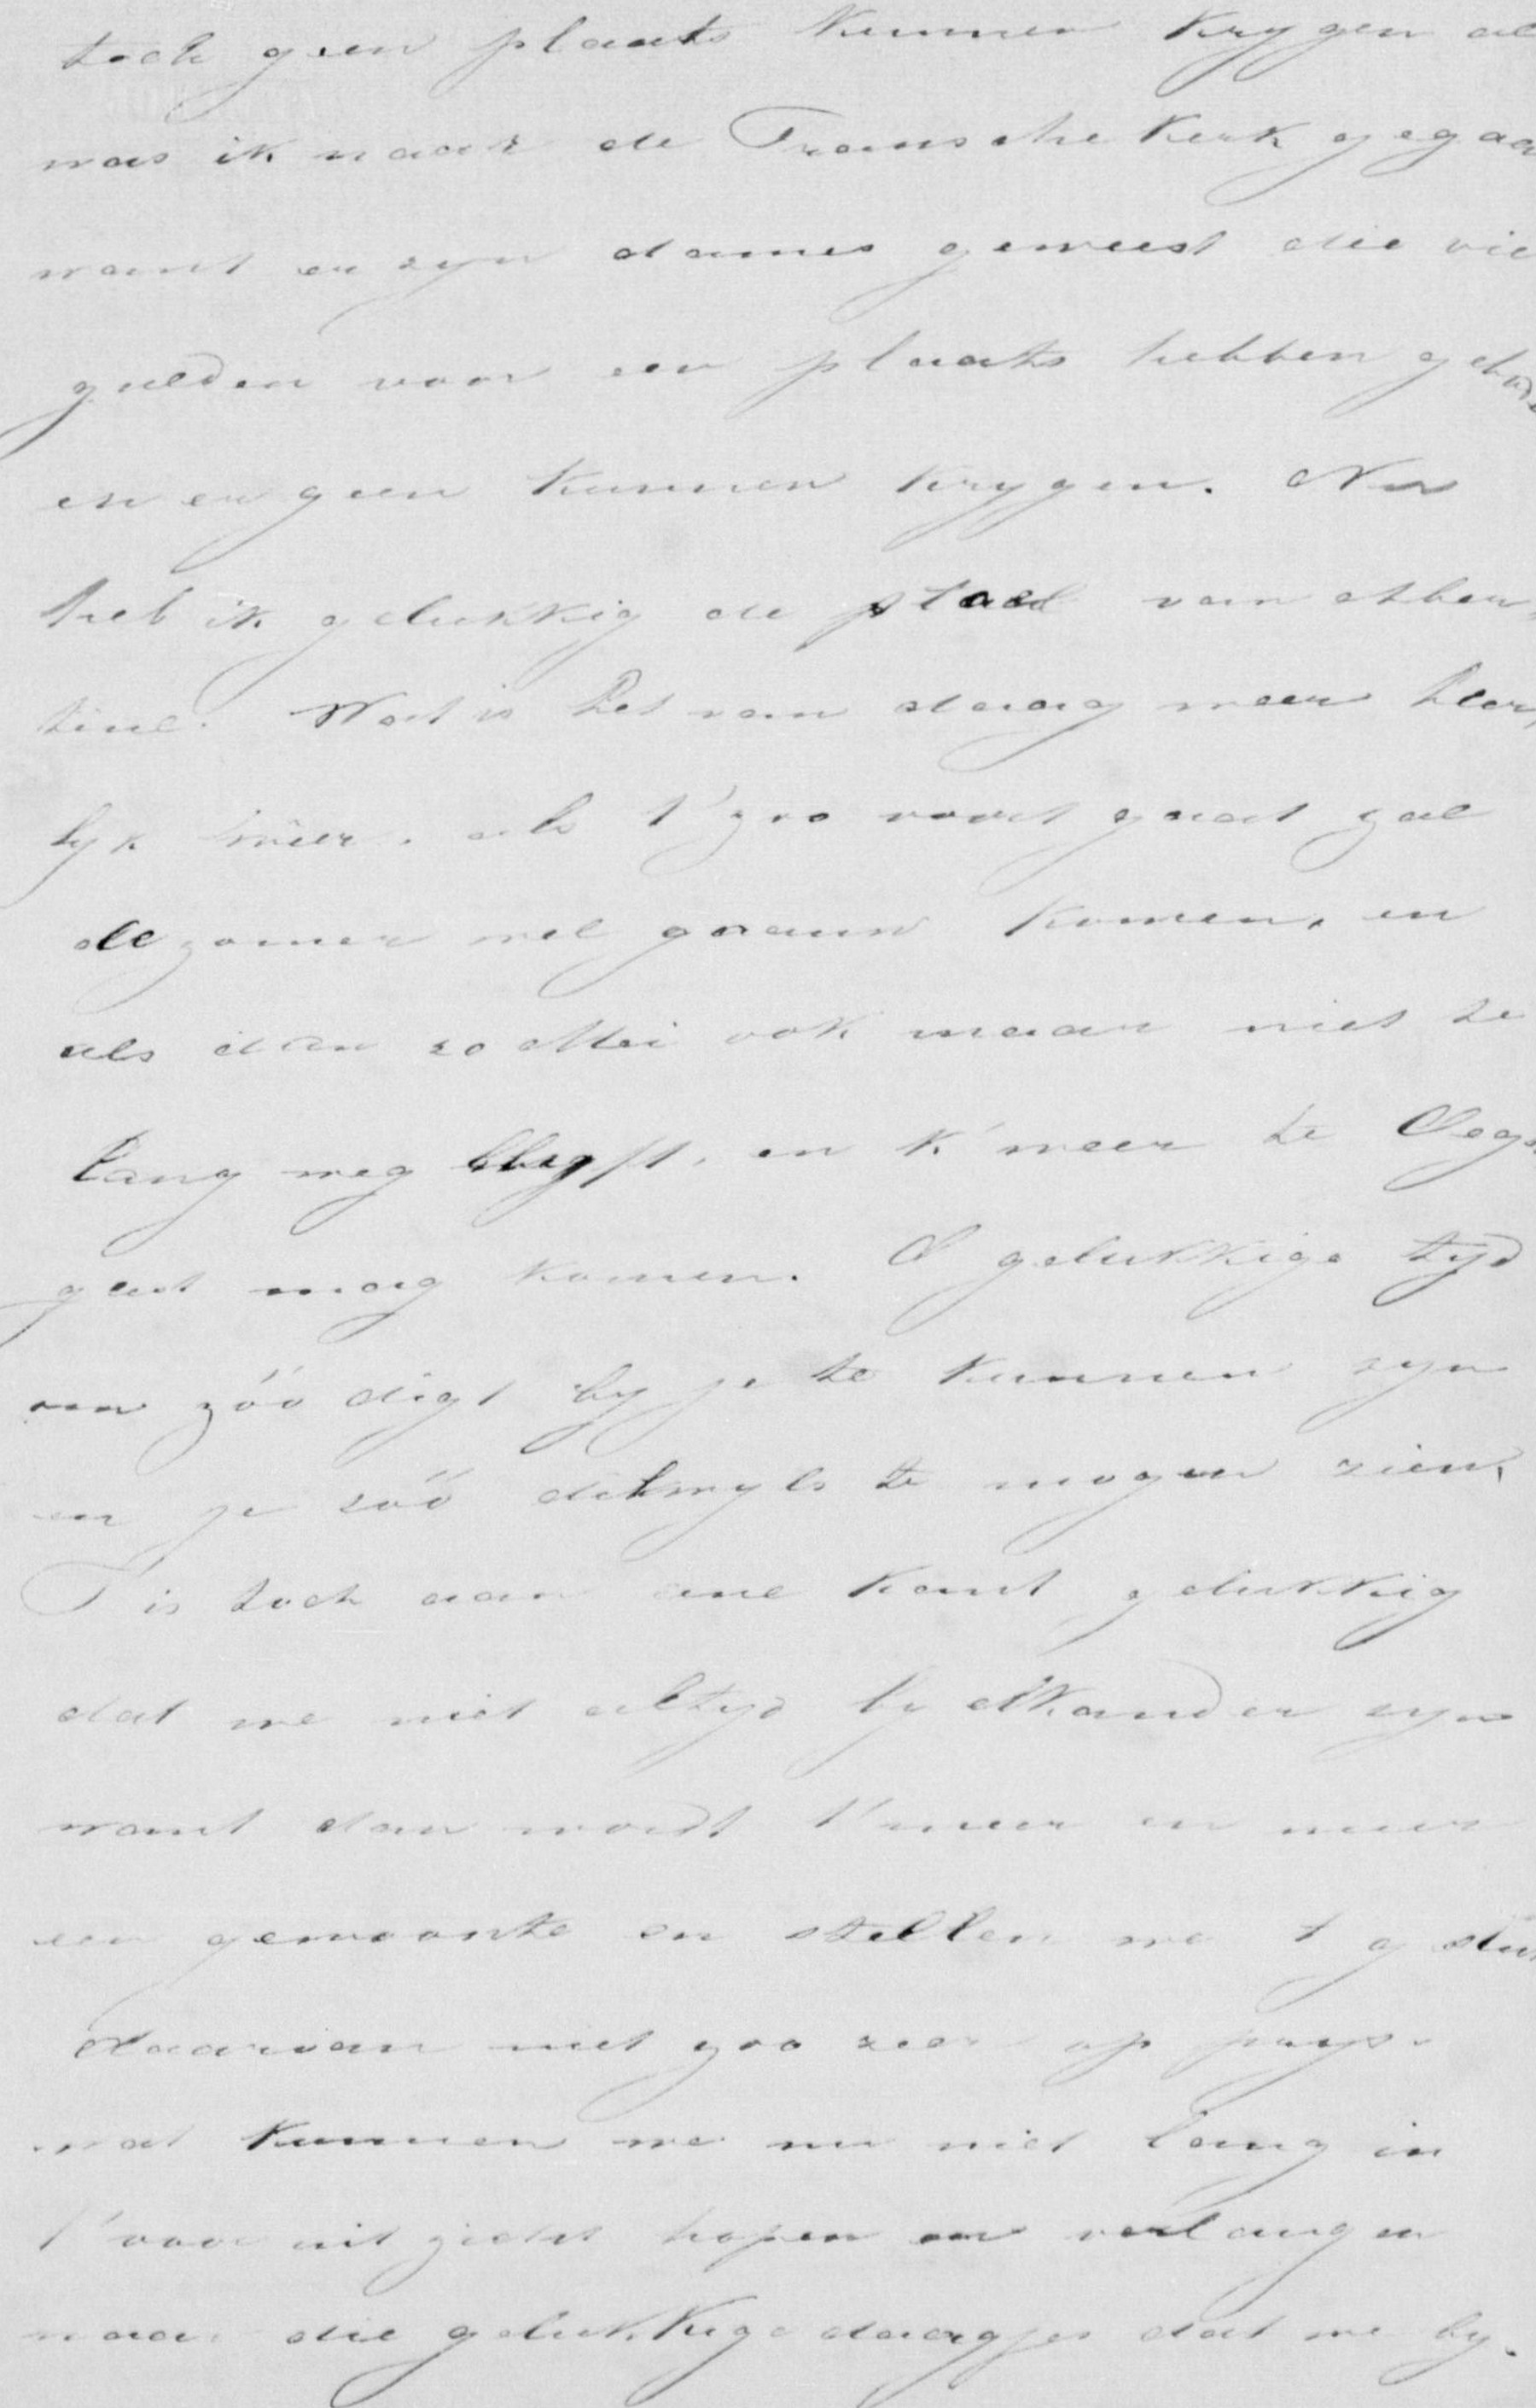 toch geen plaats kunnen krygen al
was ik naar de Fransche kerk gegaa
want er zyn dames geweest die vie
gulden voor een plaats hebben gebode
en er geen kunnen krygen. Nu
heb ik gelukkig de plaats van Alber,
tine. Wat is het van daag weer heer,
lyk weer. als t'zoo voort gaat zal
de zomer wel gaauw komen, en
als dan zo Mei ook maar niet te
lang weg blyft, en k' weer te Oegs
geest mag komen. O gelukkige tyd
om zóó digt by je te kunnen zyn
en je zóó dikwyls te mogen zien,
T is toch aan eene kant gelukkig
dat we niet altyd by elkander zyn
want dan wordt t'meer en meer
een gewoonte en stellen we t g
daarvan niet zoo zeer op prys.
wat kunnen we nu niet lang in
t'voor uit zicht hopen en verlangen
naar die gelukkige daagjes dat we by.